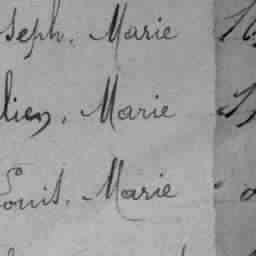 seph, Marie
lien, Marie
Louis, Marie